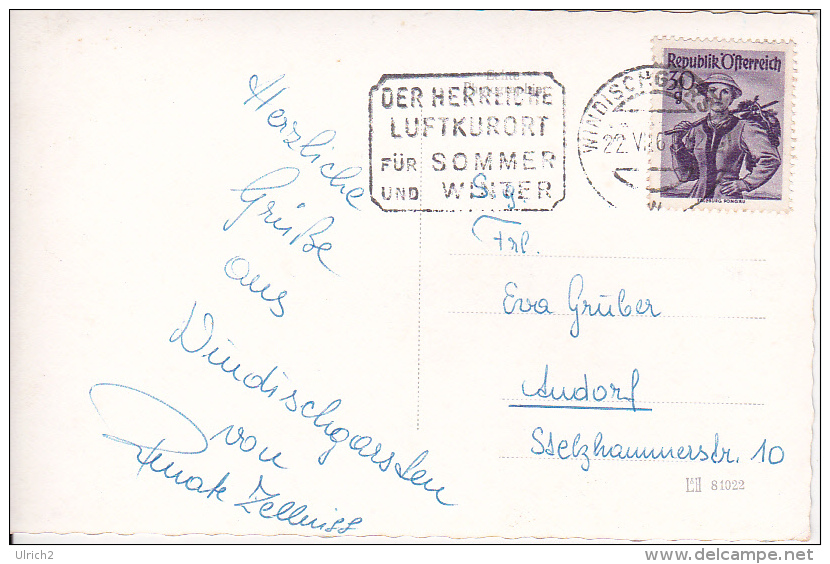 Herzliche
Grüße
aus
Windischgarsten
von
Renate
DER HERRLICHE
LUFTKURORT
FÜR SOMMER
UND WINTER
WINDISCHG
22. VII. 6
Republik Österreich
30 g
SALZBURG, PONGAU
S. g.
Frl.
Eva Gruber
Andorf
Stelzhammerstr. 10
81022
Ulrich2
www.delcampe.net